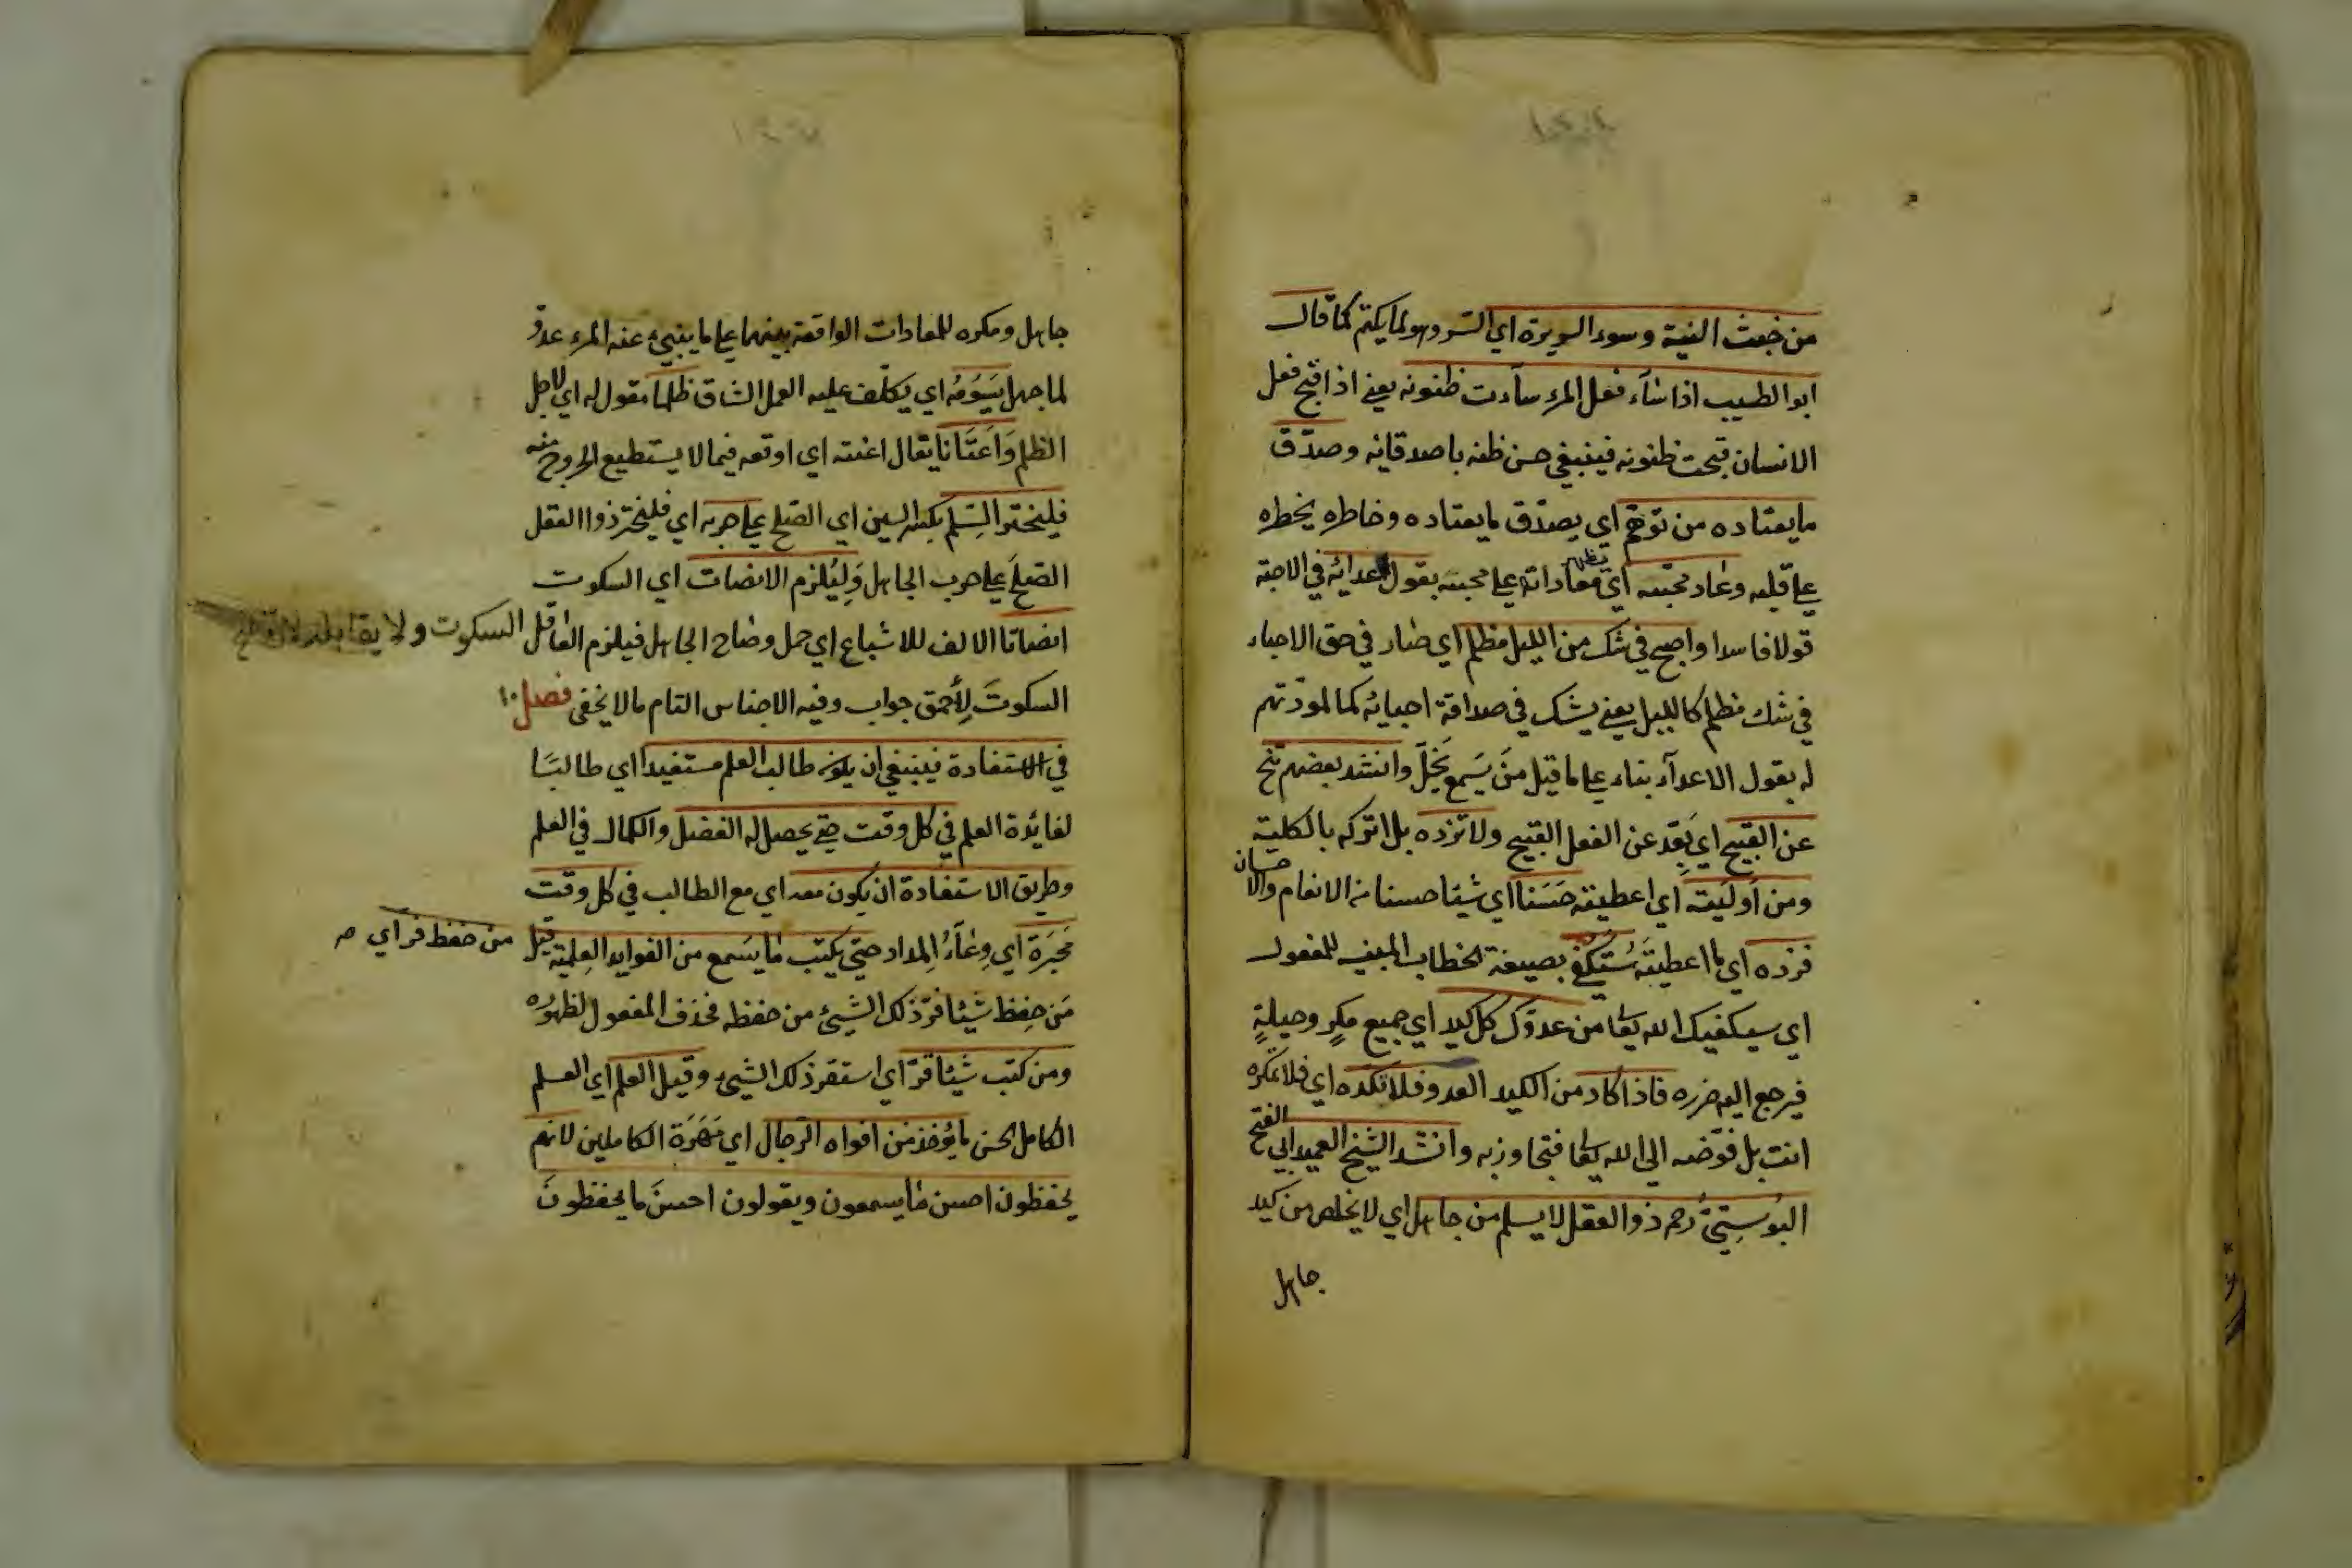 من خبث النية وسوء السريرة اي السر وهو لما يكتم كما قال
ابو الطيب اذا ساء فعل المرء ساءت ظنونه يعني اذا قبح فعل
الانسان قبحت ظنونه فينبغي حسن ظنه باصدقائه وصدّق
ما يعتاده من توهّم اي يصدّق ما يعتاده وخاطره يخطره
علي قلبه وعاد محبيه اي تظهر معاداته علي محبيه بقول اعدائه في الاحبة
قولا فاسدا واصبح في شك من الليل مظلم اي صار في حق الاحباء
في شك مظلم كالليل يعني يشك في صداقة احبائه كما لمودّتهم
له بقول الاعدآء بناء علي ما قيل مَن يَسمع يَخَلّ وانشد بعضهم تنح
عن القبيح اي بَعِّد عن الفعل القبيح ولا تزده بل اتركه بالكلية
ومن اَوليته اي اعطيته حَسَنا اي شيئا حسنا من الانعام والاحسان
فزده اي ما اعطيته سَتُكفي بصيغة الخطاب المبني للمفعول
اي سيكفيك الله تعا من عدوّك كل كيد اي جميع مكرٍ وحيلةٍ
فيرجع اليه ضرره فاذا كاد من الكيد العدو فلا تكده اي فلا تمكره
انت بل فوّضه الي الله تعا وانشد الشيخ العميد ابي الفتح
البُوستيّ رحم ذو العقل لا يسلم من جاهل اي لا يخلص من كيد
جاهل
جاهل ومكره للمعادات الواقعة بينهما علي ما ينبيء عنه المرء عدوّ
لما جهل يَسُومُه اي يكلّف عليه العمل الشاق ظلما مفعول له اي لاجل
الظلم وَاعنَاتا يقال اعنته اي اوقعه فيما لا يستطيع الخروج منه
فليختر السِّلم بكسر السين اي الصّلح علي حربه اي فليختر ذوا العقل
الصلحَ علي حرب الجاهل وَليُلزم الانصات اي السكوت
انصاتا الالف للاشباع اي حمل وصاح الجاهل فيلزم العاقل السكوت ولا يقابله
السكوتَ لِأحمق جواب وفيه الاجناس التام ما لا يخفى فصل ١٠
في الاستفادة فينبغي ان يكون طالب العلم مستفيدا اي طالبًا
لفائدة العلم في كل وقت حتي يحصل له الفضل والكمال في العلم
وطريق الاستفادة ان يكون معه اي مع الطالب في كل وقت
مَحبَرَة اي وِعَآءُ المِداد حتي يكتب ما يسَمع من الفوايد العِلمية قيل من حفظ فرّ اي
مَن حفِظ شيئا فرّ ذلك الشيئ من حفظه فحذف المفعول لظهوره
ومن كتب شيئا قرّ اي استقر ذلك الشيئ وقيل العلم اي العلم
الكامل الحسن ما يؤخذ من افواه الرجال اي مَهَرَة الكاملين لانهم
يحفظون احسن ما يسمعون ويقولون احسنَ ما يحفظونَ